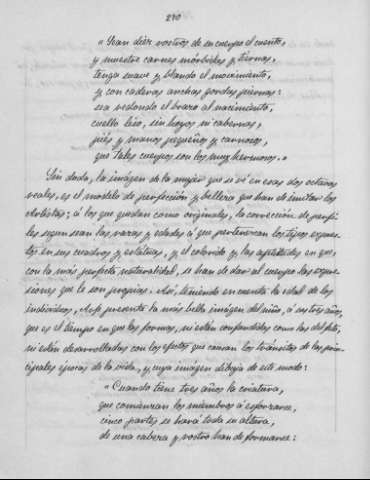 270
"Sean diez rostros de su cuerpo el cuento,
y muestre carnes mórbidas y tiernas,
tenga suave y blando el movimiento,
y con caderas anchas gordas piernas:
sea redondo el brazo al nacimiento,
cuello liso, sin hoyos ni cabernas,
piés y manos pequeños y carnosos,
que tales cuerpos son los muy hermosos."
Sin duda, la imágen de la mujer que se vé en esas dos octavas
reales, es el modelo de perfección y belleza que han de imitar los
Artistas; á los que quedan como originales, la corrección de perfi-
les segun sean las razas y edades á que pertenezcan los tipos expues-
tos en sus cuadros y estátuas, y el colorido y las aptitudes en que,
con la más perfecta naturalidad, se han de dar al cuerpo las expre-
siones que le son propias. Así, teniendo en cuenta la edad de los
individuos, Arfe presenta la más bella imágen del niño, á los tres años,
que es el tiempo en que las formas, ni están confundidas como las del feto,
ni están desarrolladas con los efectos que causan los tránsitos de las prin-
cipales épocas de la vida, y cuya imagen dibuja de este modo:
"Cuando tiene tres años la criatura,
que comienzan los miembros á esforzarse,
cinco partes se hará toda su altura,
de una cabeza y rostro han de formarse: